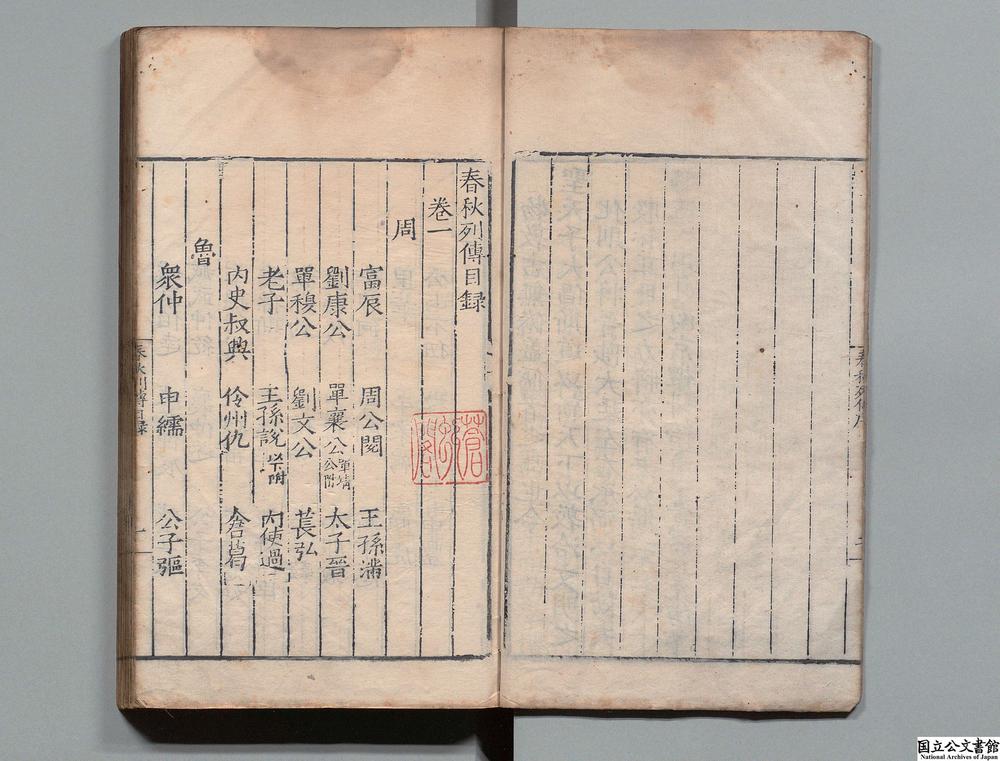 春秋列傳目録
卷一
周
富辰 周公閱 王孫滿
劉康公 單襄公 單靖公附 太子晉
單穆公 劉文公 萇弘
老子 王孫說 附 內史過
內史叔興 伶州鳩
魯
衆仲 申繻 公子彄
春秋列傳目録 一
春秋列傳序 二
蒼
閣
国立公文書館
National Archives of Japan